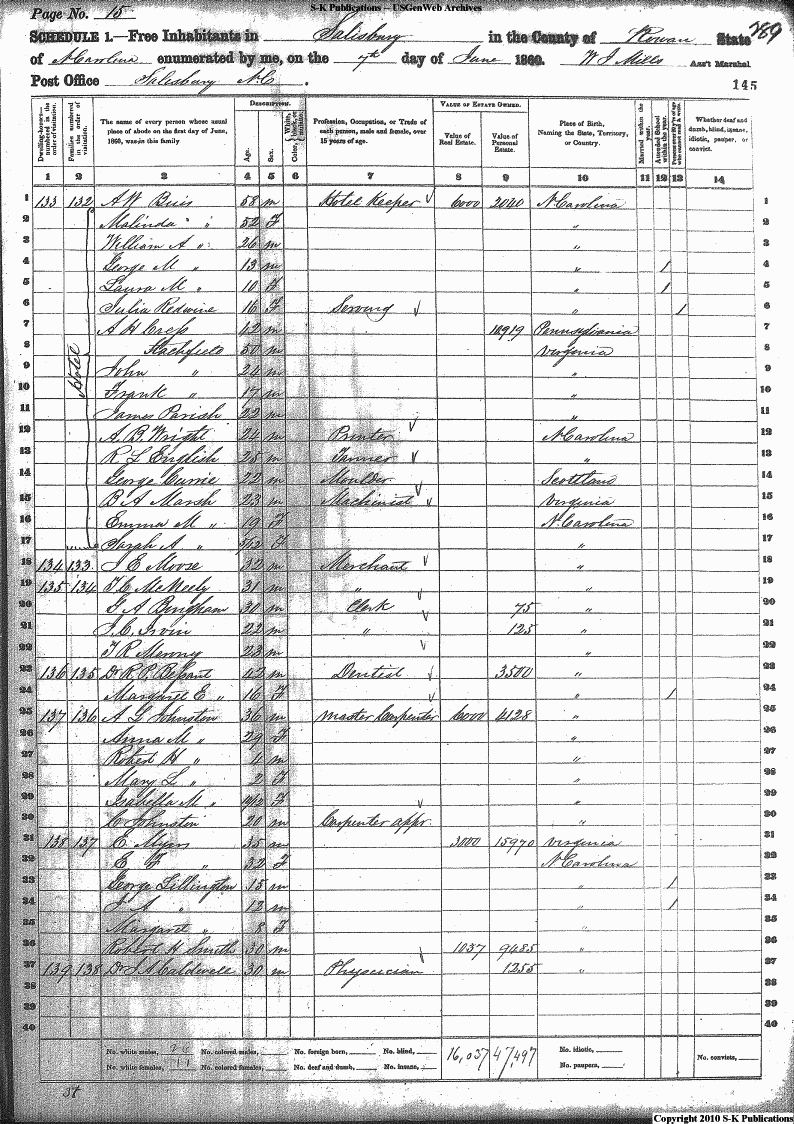 S-K Publications – USGenWeb Archives
Page No. 15
289
SCHEDULE 1.—Free Inhabitants in Salisbury in the County of Rowan State
of N Carolina enumerated by me, on the 7th day of June 1860. W J Mills Ass't Marshal
Post Office Salisbury N.C.
145
Dwelling-houses—numbered in the order of visitation.
Families numbered in the order of visitation.
The name of every person whose usual place of abode on the first day of June, 1860, was in this family
DESCRIPTION.
Age.
Sex.
Color,
Profession, Occupation, or Trade of each person, male and female, over 15 years of age.
VALUE OF ESTATE OWNED.
Value of Real Estate.
Value of Personal Estate.
Place of Birth, Naming the State, Territory, or Country.
Married within the year.
Attended School within the year.
Whether deaf and dumb, blind, insane, idiotic, pauper, or convict.
1 2 3 4 5 6 7 8 9 10 11 12 13 14
Hotel
1 133 132 A W Buis 58 m Hotel Keeper 6000 2040 N Carolina 1
2 Malinda " " 52 F " 2
3 William A " 26 m " 3
4 George M " 13 m " / 4
5 Laura M " 10 F " / 5
6 Julia Redwine 16 F Serving " / 6
7 A H Cress 42 m 10919 Pennsylvania 7
8 Stachfield 50 m Virginia 8
9 John " 24 m " 9
10 Frank " 17 m " 10
11 James Parish 22 m " 11
12 A. B. Wright 24 m Printer N Carolina 12
13 R L English 25 m Tanner " 13
14 George Currie 22 m Moulder Scottland 14
15 B A Marsh 23 m Machinist Virginia 15
16 Emma M " 19 F N Carolina 16
17 Sarah A " 5/12 F " 17
18 134 133 J E Moose 32 m Merchant " 18
19 135 134 T C McNeely 31 m " " 19
20 G A Bingham 30 m Clerk 75 " 20
21 J. C. Irvin 22 m " 125 " 21
22 T R Meroney 23 m " 22
23 136 135 Dr R. P. Bessant 42 m Dentist 3500 " 23
24 Margaret E " 16 F " / 24
25 137 136 A L Johnston 36 m Master Carpenter 6000 4128 " 25
26 Anna M " 29 F " 26
27 Robert H " 4 m " 27
28 Mary L " 2 F " 28
29 Isabella M " F " 29
30 C Johnston 20 m Carpenter appr. " 30
31 138 137 E Myers 35 m 3000 15970 Virginia 31
32 E F " 32 F N Carolina 32
33 George Lillington 15 m " / 33
34 J A " 12 m " / 34
35 Margaret " 8 F " 35
36 Robert H Smith 30 m 1037 9485 " 36
37 139 138 Dr J A Caldwell 30 m Physician 1255 " 37
38 38
39 39
40 40
No. white males, No. colored males, No. foreign born, No. blind, 16,037 47,497 No. idiotic,
No. white females, 11 No. colored females, No. deaf and dumb, No. insane, No. paupers, No. convicts,
37
Copyright 2010 S-K Publications